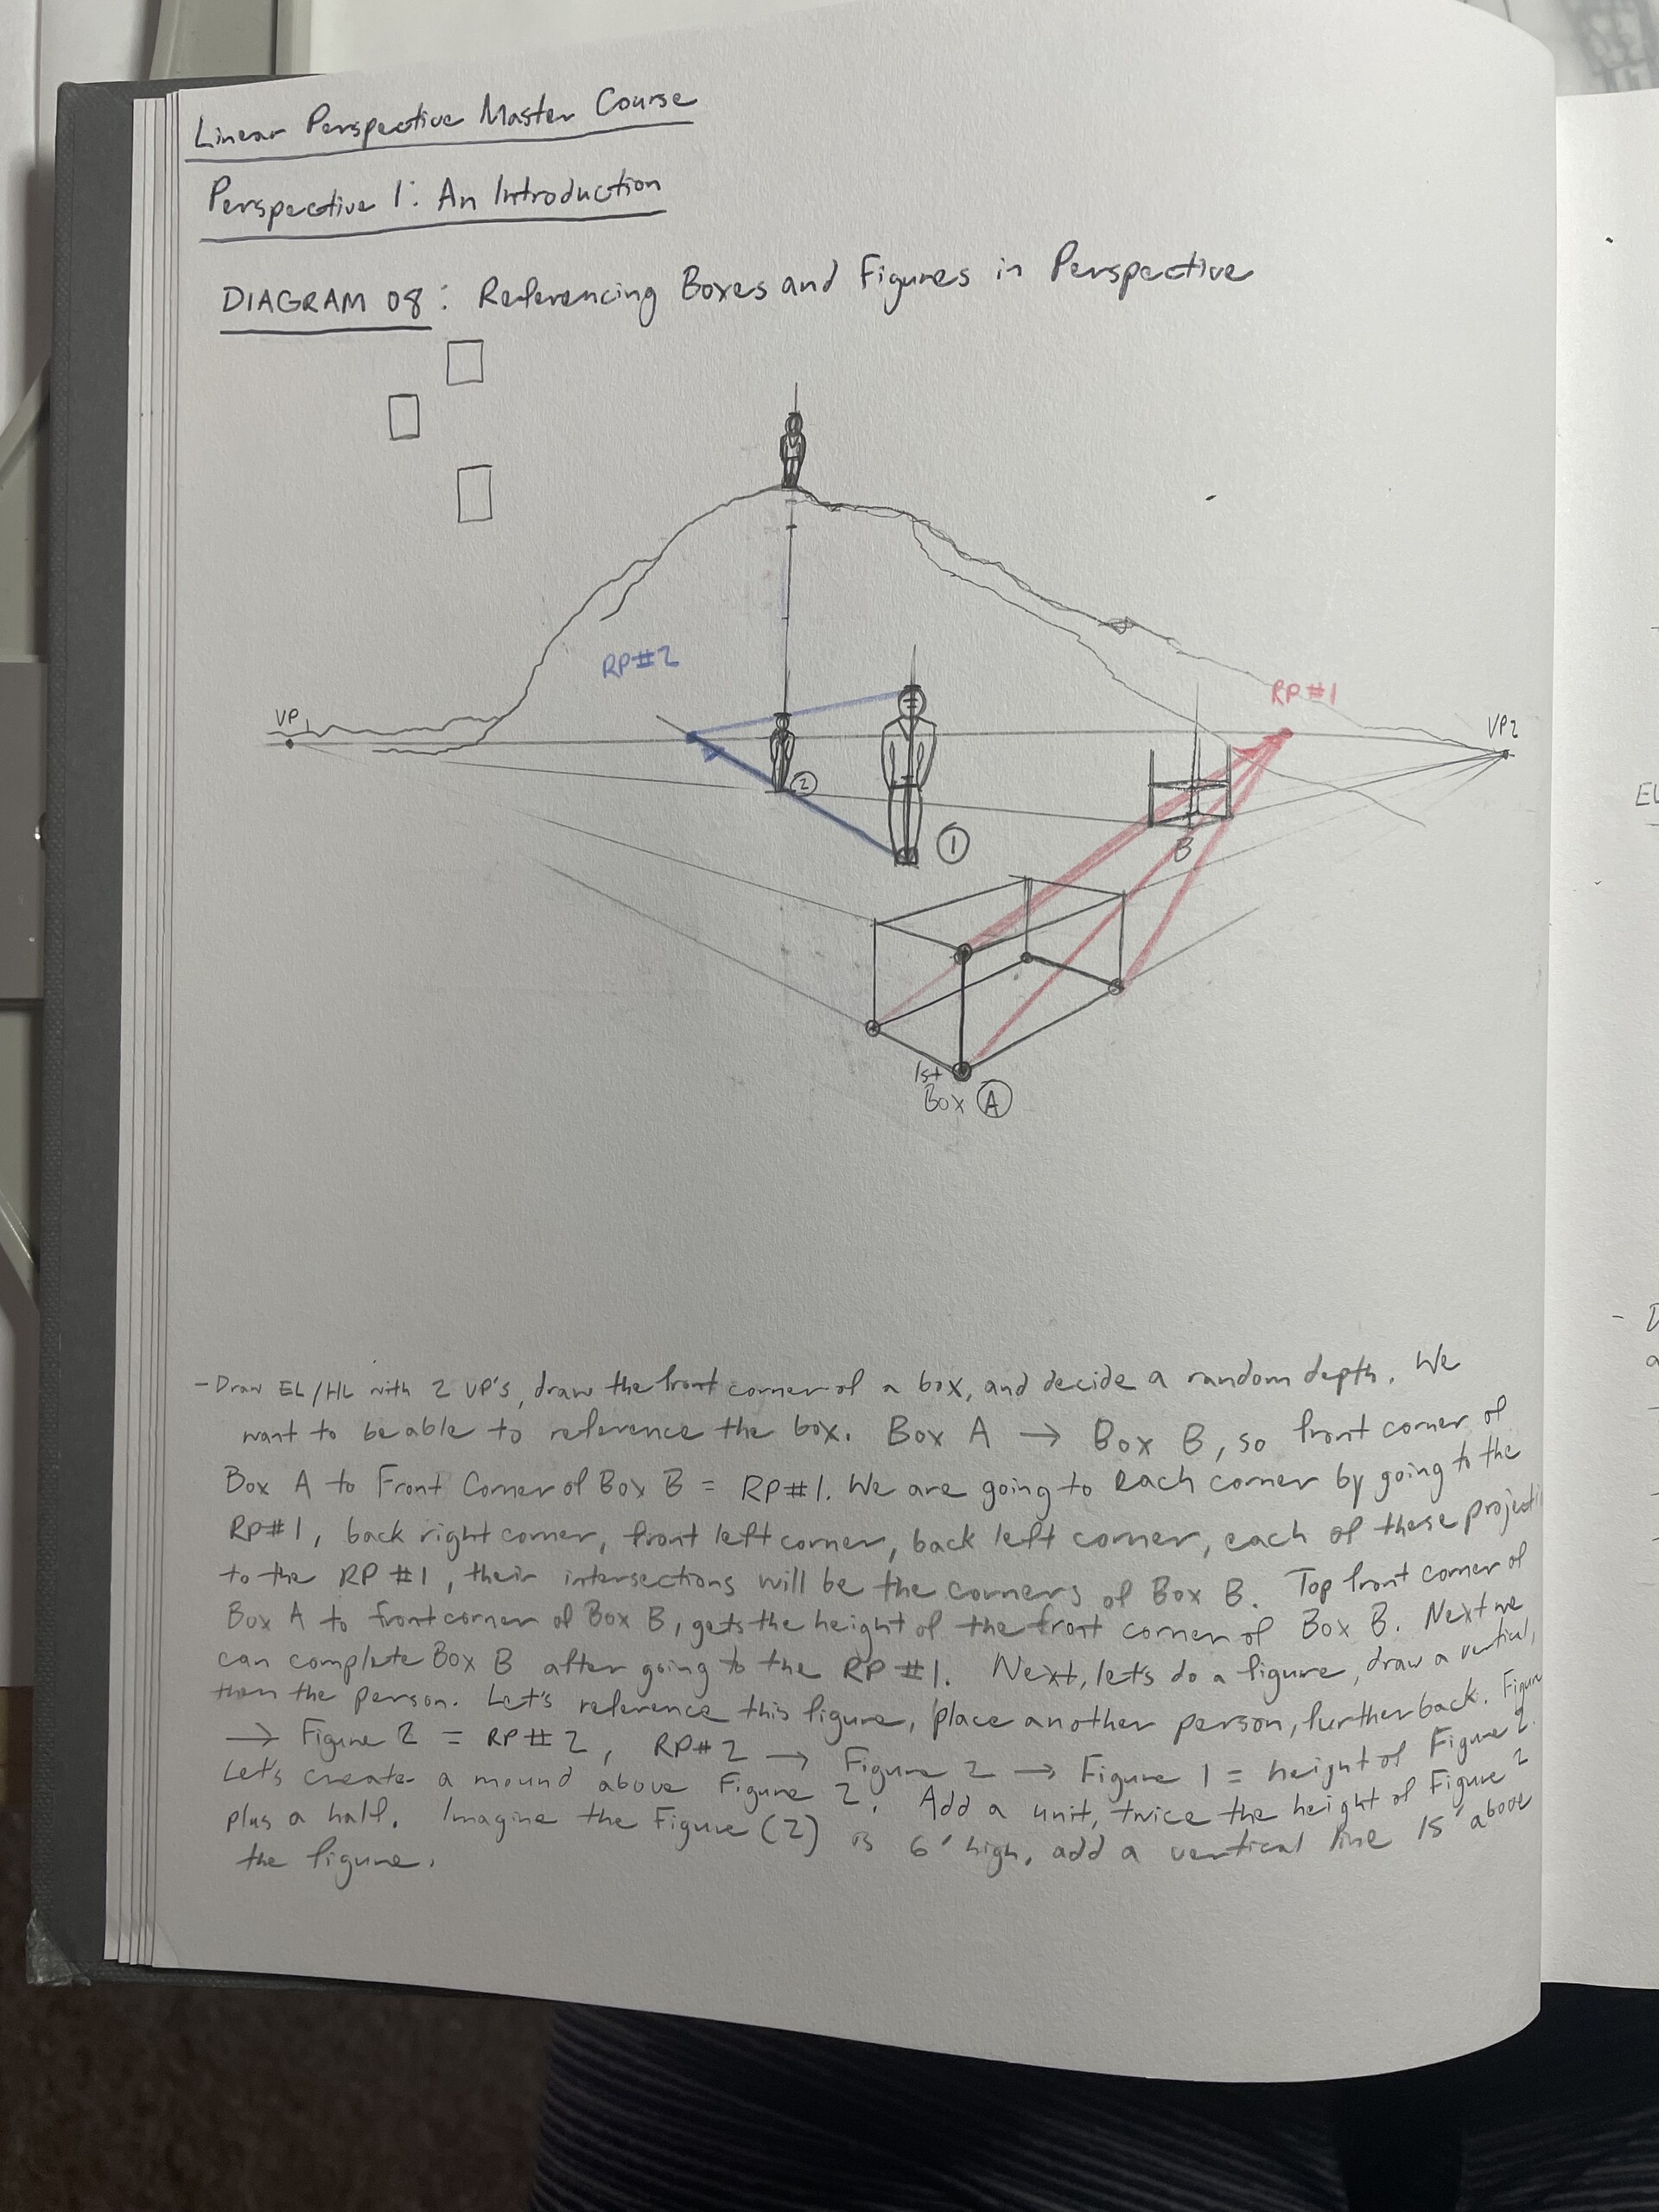 Linear Perspective Master Course
Perspective 1: An Introduction
DIAGRAM 08: Referencing Boxes and Figures in Perspective
RP#2
RP#1
VP1
VP2
2
1
B
1st
Box A
EL
- Draw EL/HL with 2 VP's, draw the front corner of a box, and decide a random depth. We
want to be able to reference the box. Box A → Box B, so front corner of
Box A to Front Corner of Box B = RP#1. We are going to each corner by going to the
RP#1, back right corner, front left corner, back left corner, each of these projecti
to the RP #1, their intersections will be the corners of Box B. Top front corner of
Box A to front corner of Box B, gets the height of the front corner of Box B. Next we
can complete Box B after going to the RP #1. Next, let's do a figure, draw a vertical,
then the person. Let's reference this figure, place another person, further back. Figure
→ Figure 2 = RP#2, RP#2 → Figure 2 → Figure 1 = height of Figure 2.
Let's create a mound above Figure 2. Add a unit, twice the height of Figure 2
plus a half. Imagine the Figure (2) is 6' high, add a vertical line 15' above
the figure.